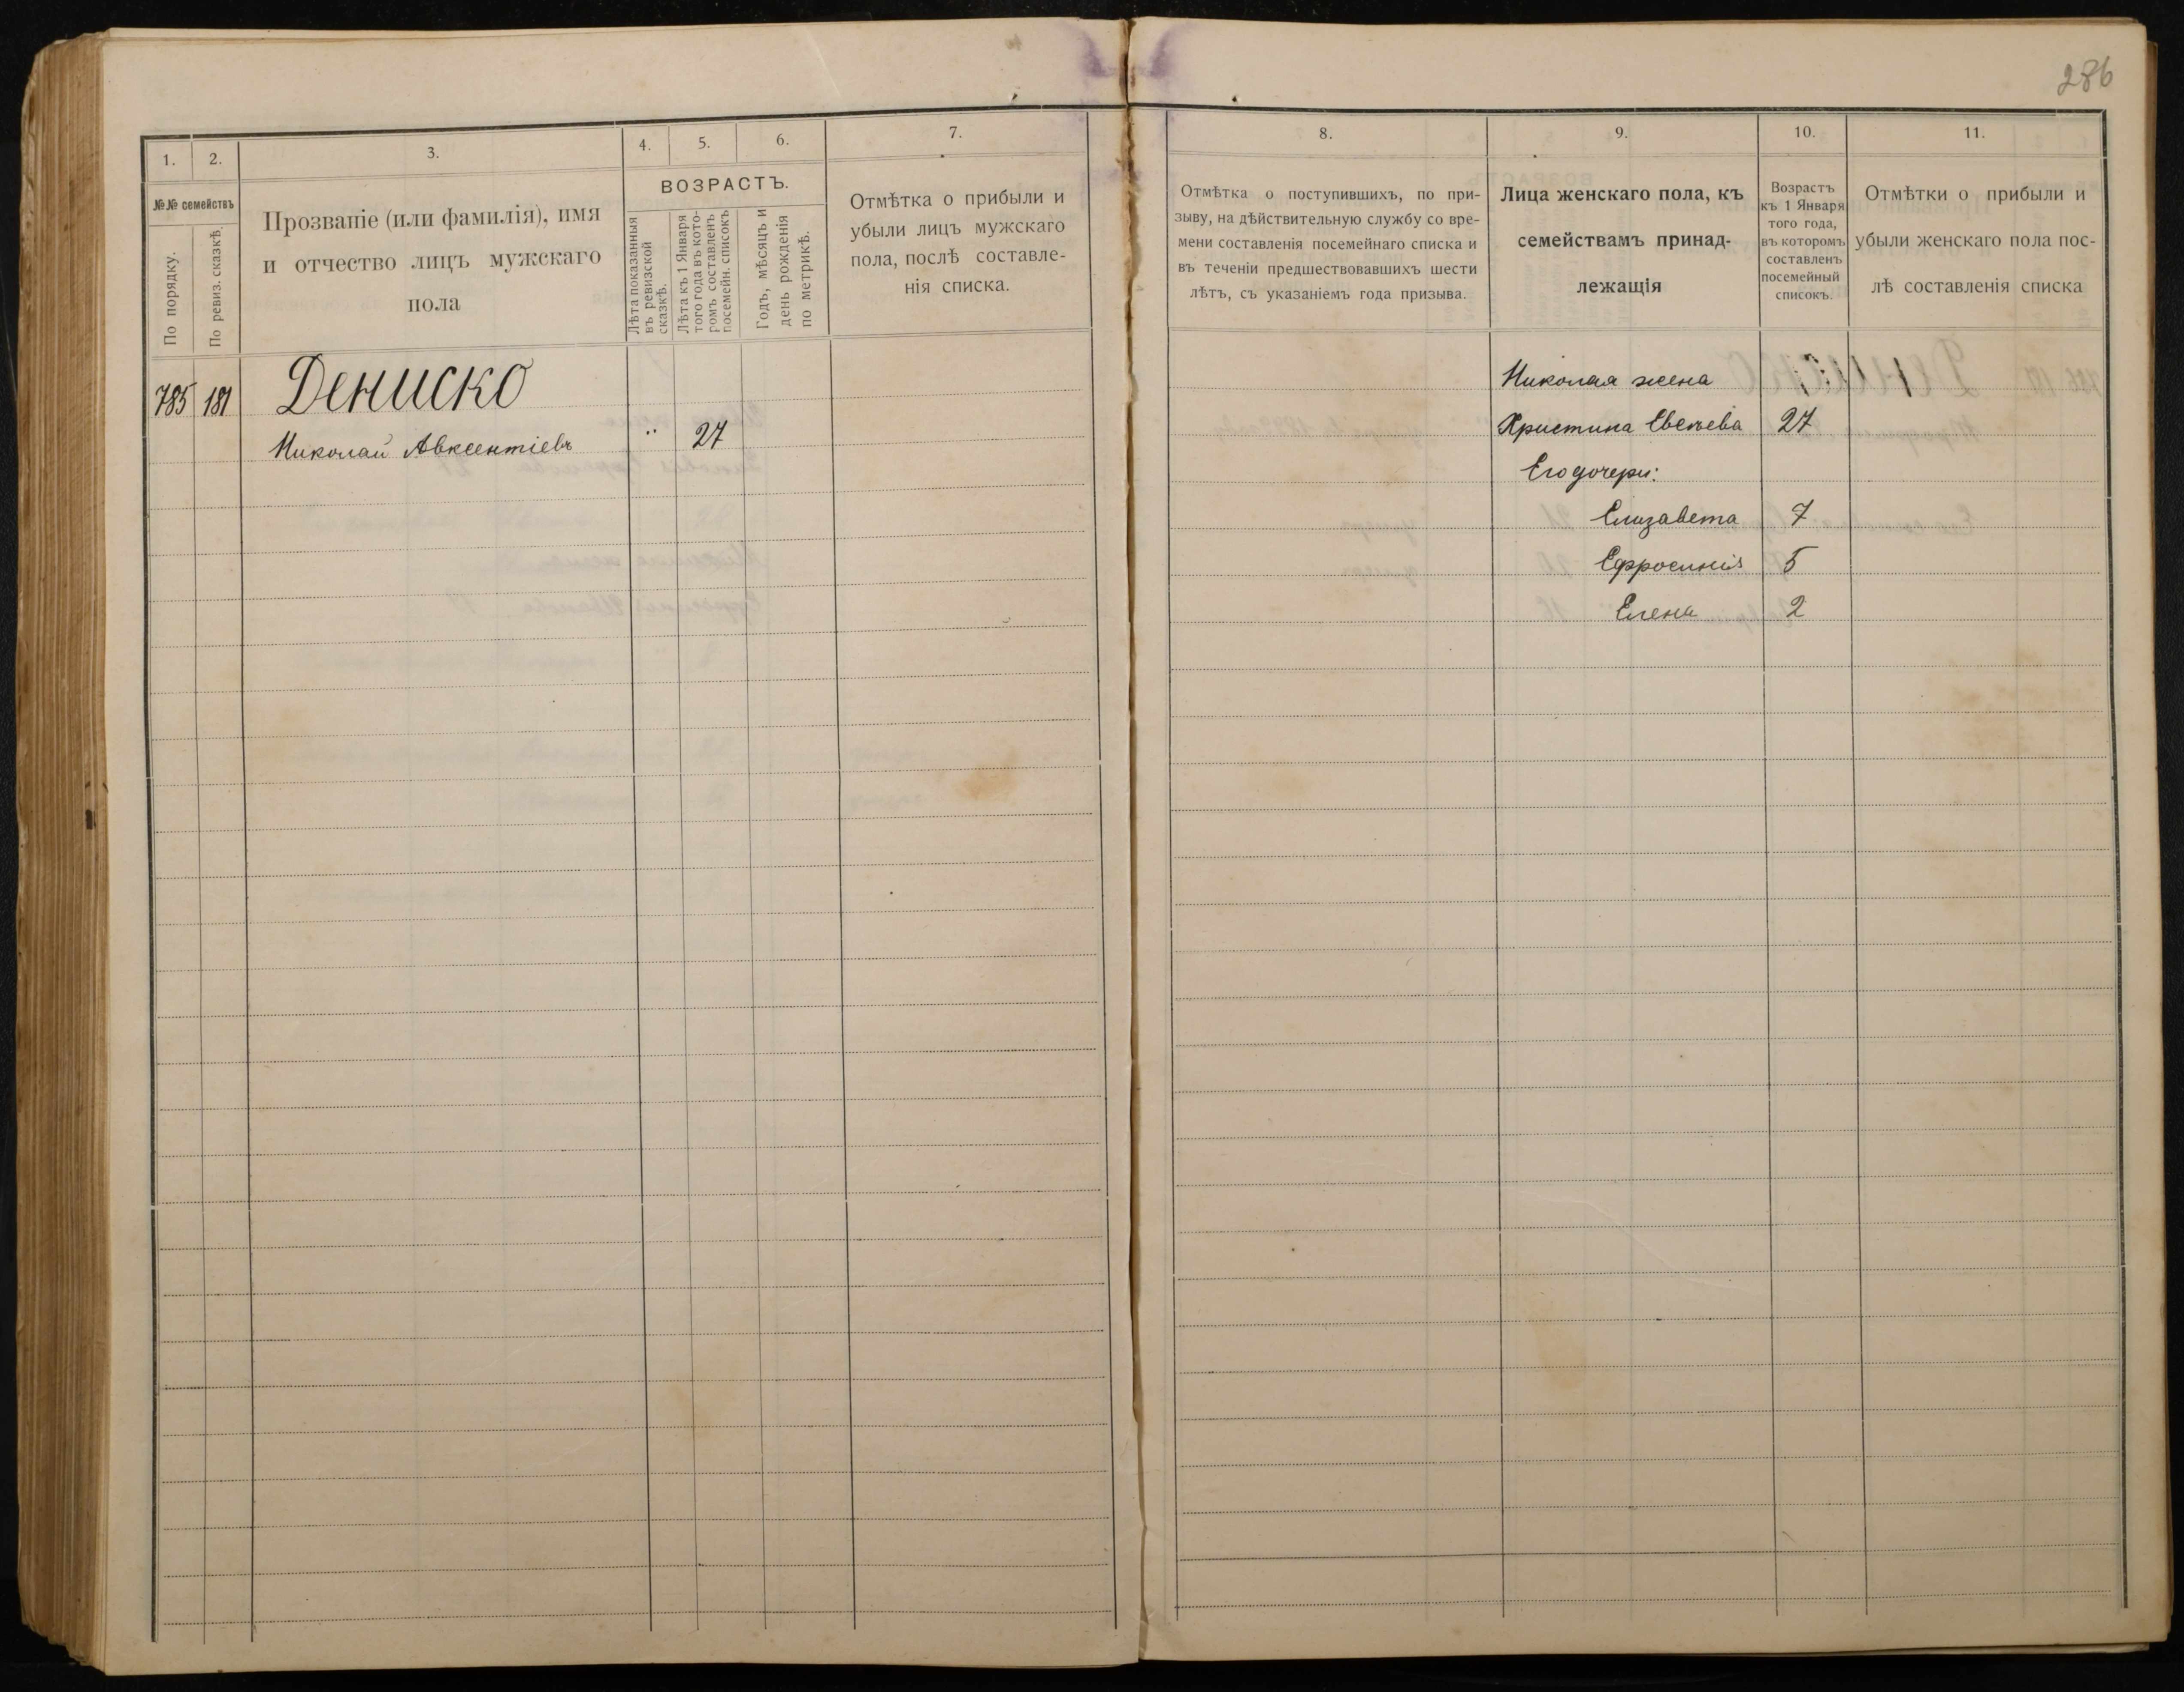 286
1.
2.
3.
4.
5.
6.
7.
№№ семействъ
По порядку.
По ревиз. сказкѣ.
Прозваніе (или фамилія), имя
и отчество лицъ мужскаго
пола
ВОЗРАСТЪ.
Лѣта показанныя
въ ревизской
сказкѣ.
Лѣта къ 1 Января
того года въ кото-
ромъ составленъ
посемейн. списокъ
Годъ, мѣсяцъ и
день рожденія
по метрикѣ.
Отмѣтка о прибыли и
убыли лицъ мужскаго
пола, послѣ составле-
нія списка.
785 181 Дениско
Николай Авксентіевъ " 27
8.
9.
10.
11.
Отмѣтка о поступившихъ, по при-
зыву, на дѣйствительную службу со вре-
мени составленія посемейнаго списка и
въ теченіи предшествовавшихъ шести
лѣтъ, съ указаніемъ года призыва.
Лица женскаго пола, къ
семействамъ принад-
лежащія
Возрастъ
къ 1 Января
того года,
въ которомъ
составленъ
посемейный
списокъ.
Отмѣтки о прибыли и
убыли женскаго пола пос-
лѣ составленія списка
Николая жена
Христина 27
Его дочери:
Елизавета 7
Ефросинія 5
Елена 2